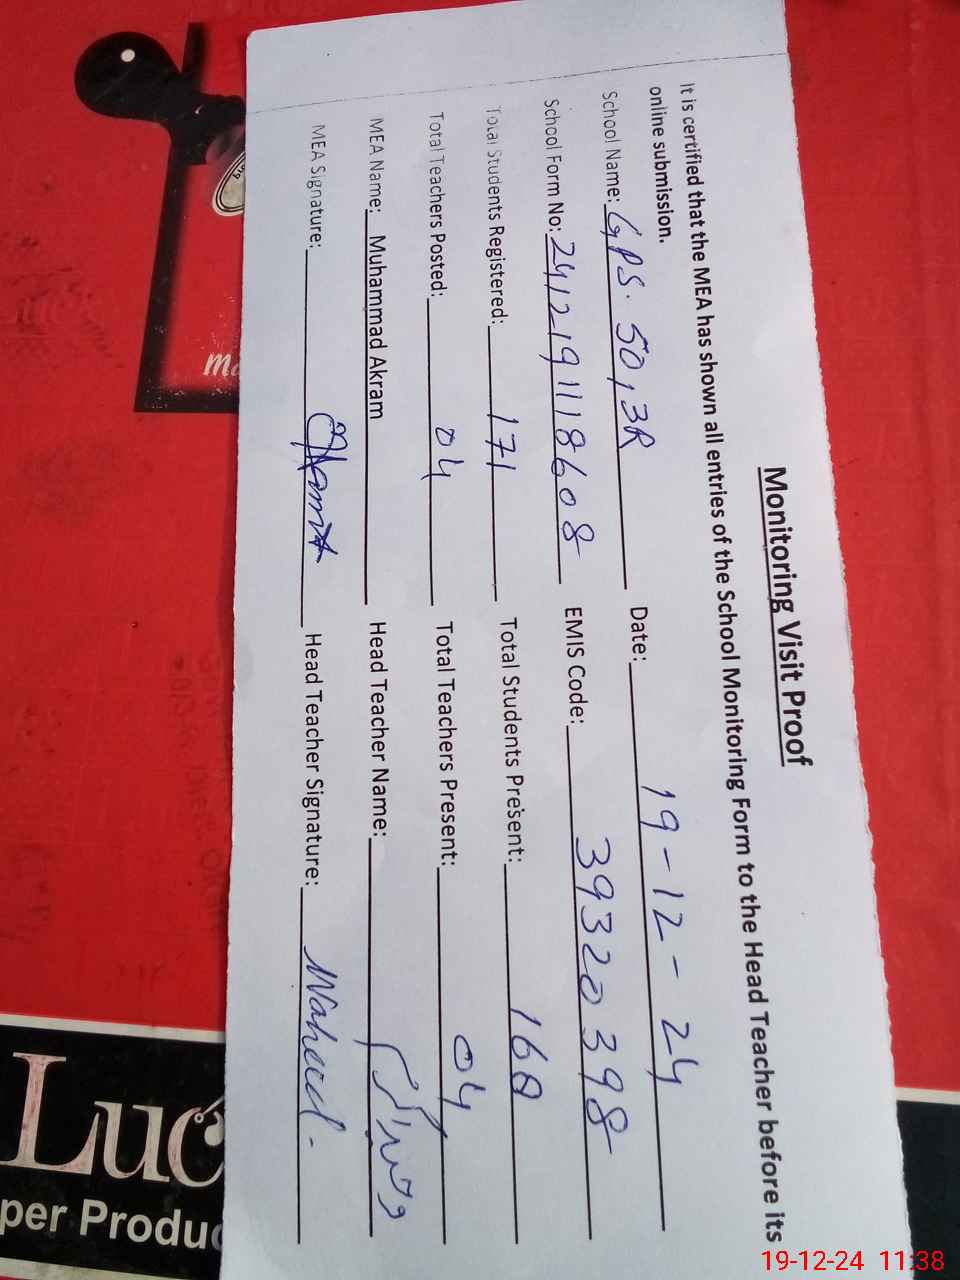 Monitoring Visit Proof
It is certified that the MEA has shown all entries of the School Monitoring Form to the Head Teacher before its
online submission.
School Name: GPS. 50,3R Date: 19-12-24
School Form No: 2412191118608 EMIS Code: 39320398
Total Students Registered: 171 Total Students Present: 160
Total Teachers Posted: 04 Total Teachers Present: 04
MEA Name: Muhammad Akram Head Teacher Name:
MEA Signature: Head Teacher Signature: Waheed.
Luc
per Produc
19-12-24 11:38